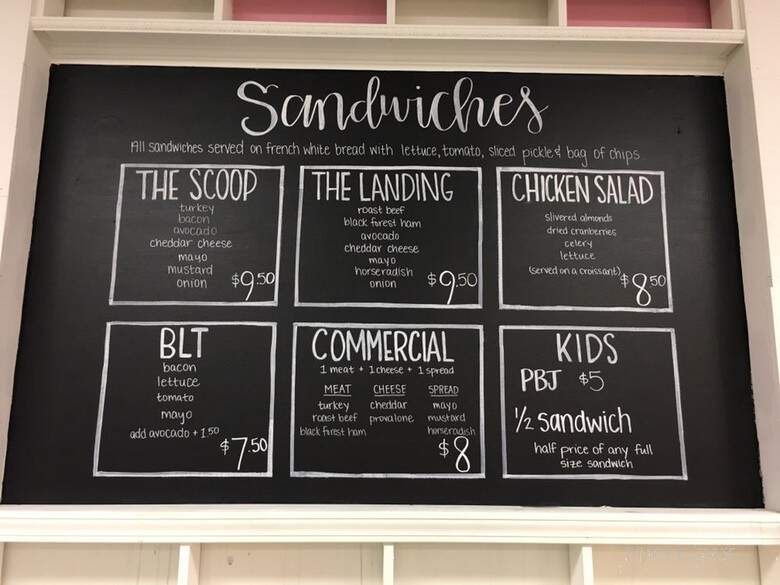 Sandwiches
All sandwiches served on french white bread with lettuce, tomato, sliced pickle & bag of chips
THE SCOOP
turkey
bacon
avocado
cheddar cheese
mayo
mustard
onion
$9.50
THE LANDING
roast beef
black forest ham
avocado
cheddar cheese
mayo
horseradish
onion
$9.50
CHICKEN SALAD
slivered almonds
dried cranberries
celery
lettuce
(served on a croissant)
$8.50
BLT
bacon
lettuce
tomato
mayo
add avocado + 1.50
$7.50
COMMERCIAL
1 meat + 1 cheese + 1 spread
MEAT CHEESE SPREAD
turkey cheddar mayo
roast beef provalone mustard
black forest ham horseradish
$8
KIDS
PBJ $5
1/2 sandwich
half price of any full
size sandwich